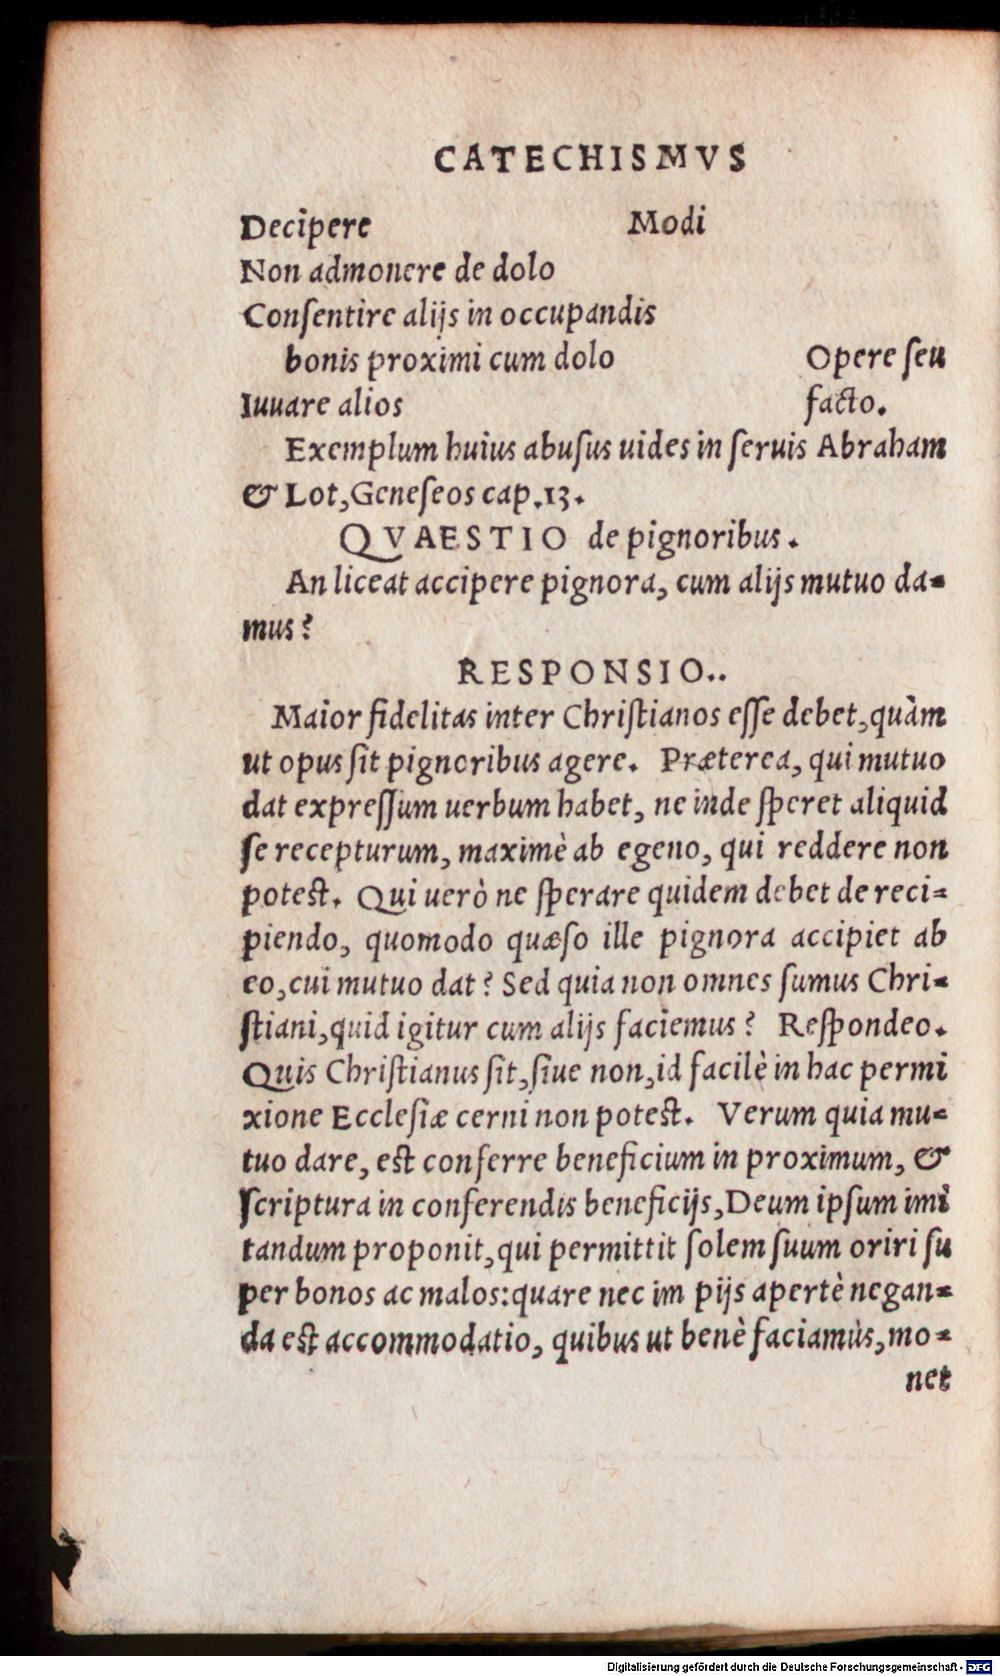 CATECHISMVS
Decipere Modi
Non admonere de dolo
Conſentire alijs in occupandis
bonis proximi cum dolo Opere ſeu
Iuuare alios facto.
Exemplum huius abuſus uides in ſeruis Abraham
& Lot, Geneſeos cap. 13.
QVAESTIO de pignoribus.
An liceat accipere pignora, cum alijs mutuo da=
mus?
RESPONSIO..
Maior fidelitas inter Chriſtianos eſſe debet, quàm
ut opus ſit pignoribus agere. Præterea, qui mutuo
dat expreſſum uerbum habet, ne inde ſperet aliquid
ſe recepturum, maximè ab egeno, qui reddere non
poteſt. Qui uerò ne ſperare quidem debet de reci=
piendo, quomodo quæſo ille pignora accipiet ab
eo, cui mutuo dat? Sed quia non omnes ſumus Chri=
ſtiani, quid igitur cum alijs faciemus? Reſpondeo.
Quis Chriſtianus ſit, ſiue non, id facilè in hac permi
xione Eccleſiæ cerni non poteſt. Verum quia mu=
tuo dare, eſt conferre beneficium in proximum, &
ſcriptura in conferendis beneficijs, Deum ipſum imi
tandum proponit, qui permittit ſolem ſuum oriri ſu
per bonos ac malos: quare nec im pijs apertè negan=
da eſt accommodatio, quibus ut benè faciamùs, mo=
net
Digitalisierung gefördert durch die Deutsche Forschungsgemeinschaft - DFG